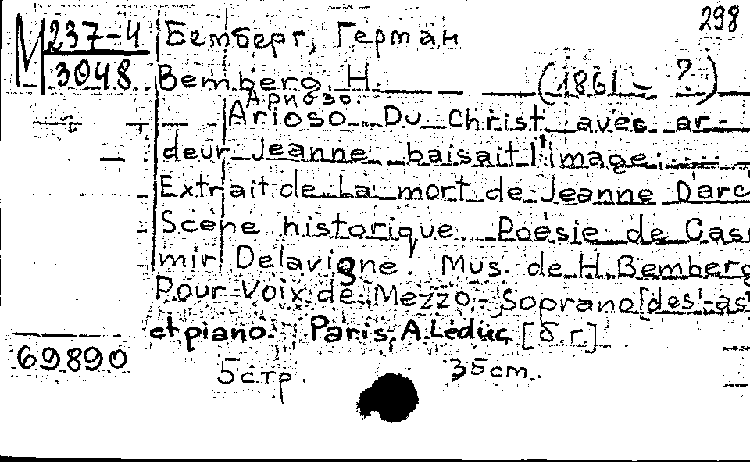 298
М 237-4
3048
Бемберг, Герман
Bemberg H. (1861 - ?)
Ариозо.
Arioso Du Christ avec ar-
deur Jeanne baisait l'image:
Extrait de La mort de Jeanne D'arc
Scene historique Poésie de Cas
mir Delavigne. Mus. de H. Bemberg
Pour Voix de Mezzo-Soprano [des]-as
et piano. Paris, A. Leduc [б.г.]
69890
5 стр. 35 cm.